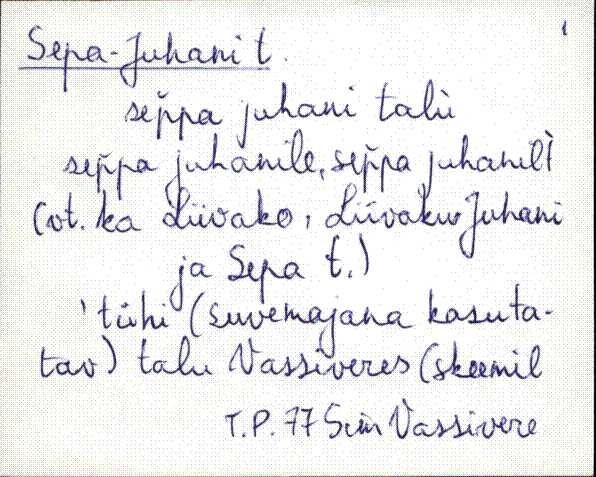 1
Sepa-Juhani t.
sep̆pa juhani talù
sep̆pa juhanile, sep̆pa juhanilt̀
(vt. ka Liivako, Liivaku Juhani
ja Sepa t.)
'tühi (suvemajana kasuta-
tav) talu Vassiveres (skeemil
T.P. 77 Sim Vassivere